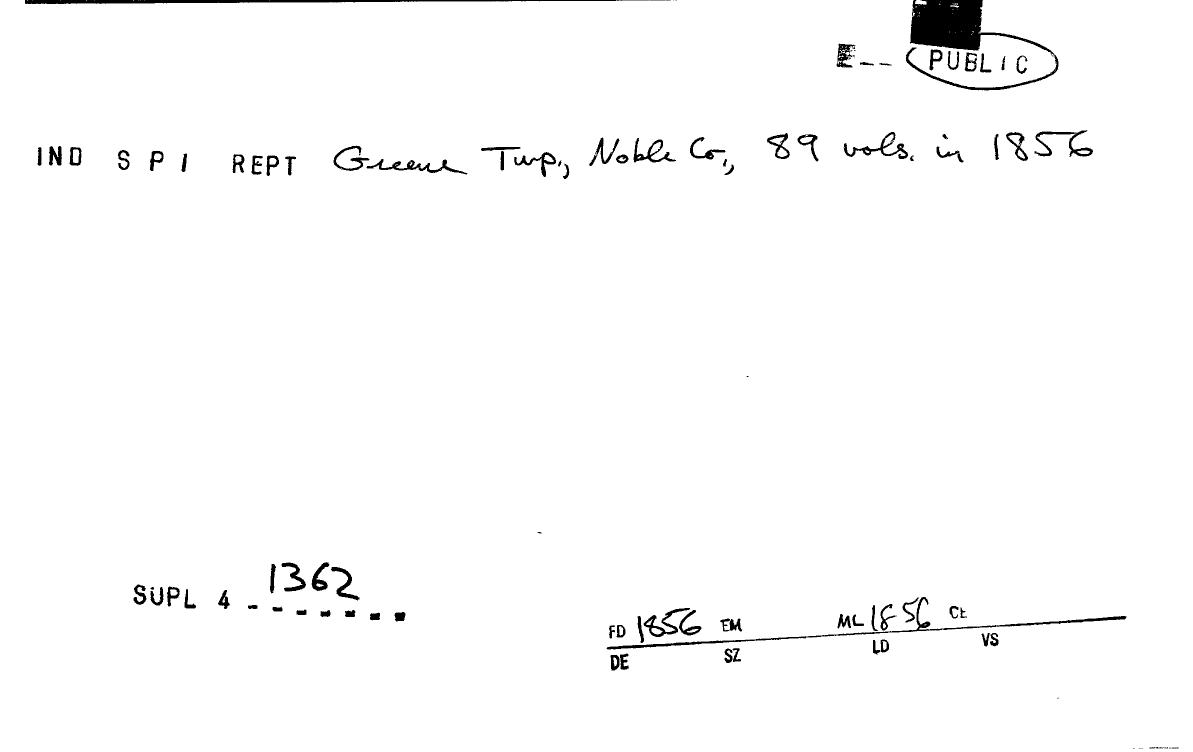 E-- PUBLIC
IND SPI REPT Greene Twp., Noble Co., 89 vols. in 1856
SUPL 4 1362 -------
FD 1856 EM ML 1856 CE
DE SZ LD VS